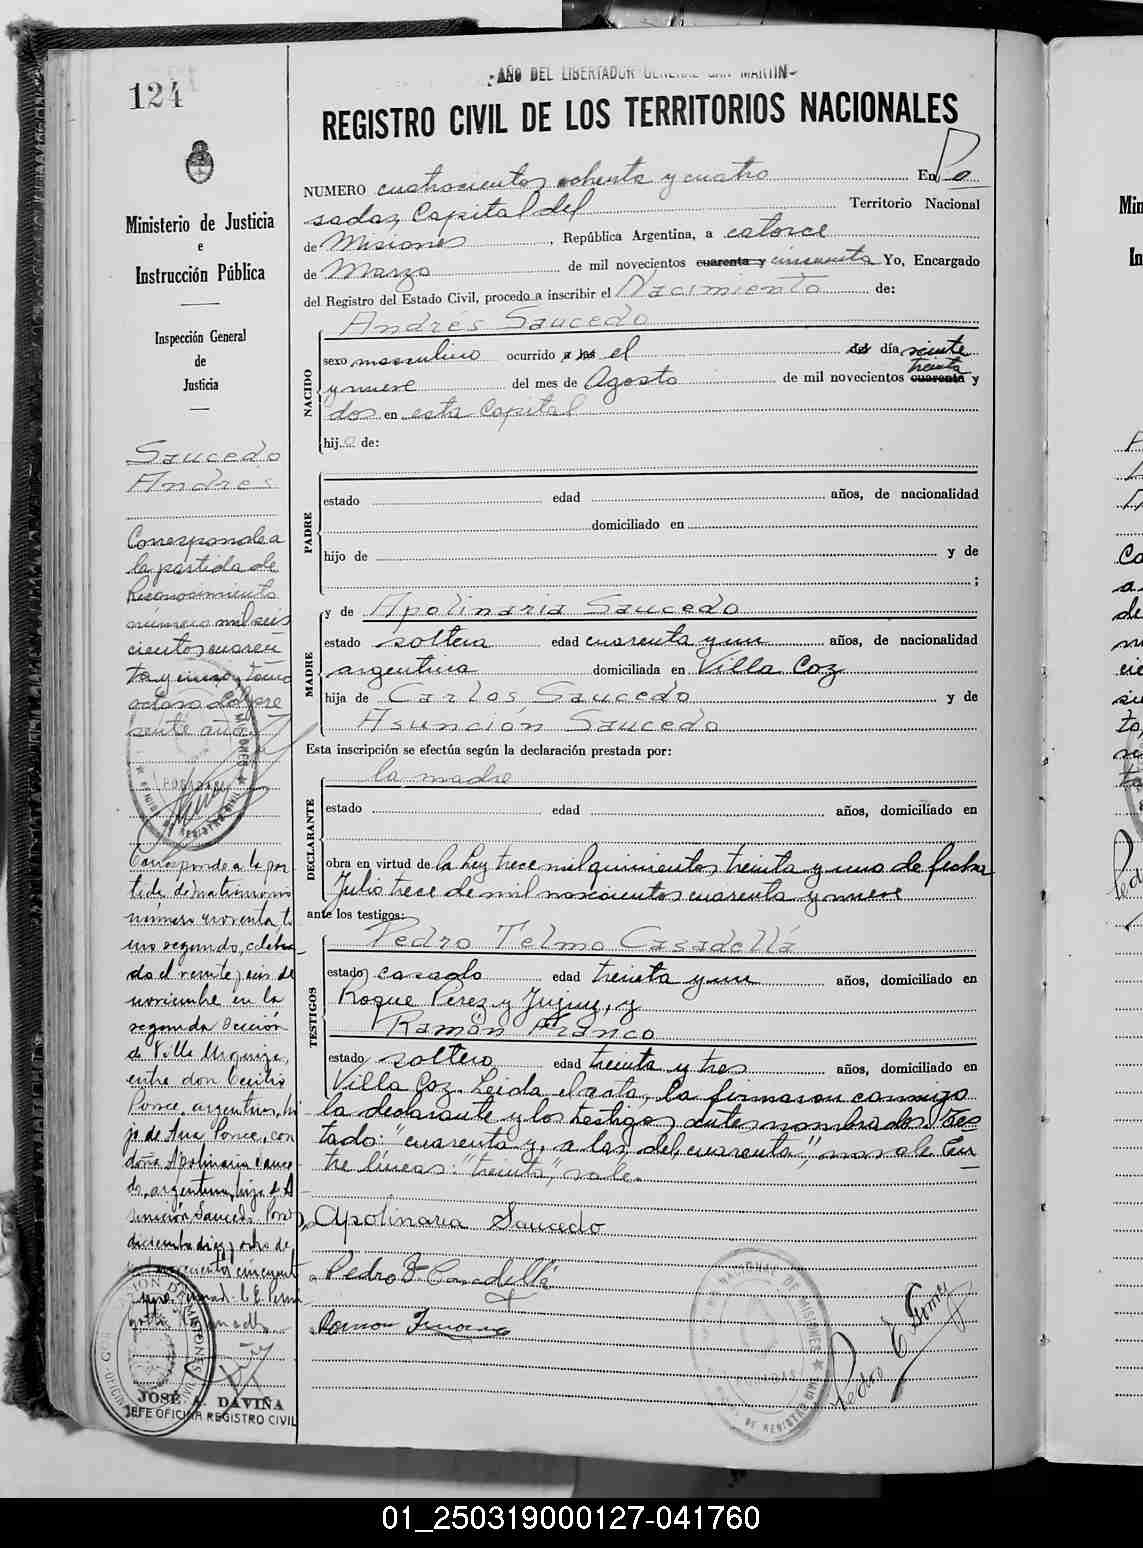 124
AÑO DEL LIBERTADOR GENERAL SAN MARTIN
REGISTRO CIVIL DE LOS TERRITORIOS NACIONALES
NUMERO cuatrocientos ochenta y cuatro En Po
sadas, Capital del Territorio Nacional
de Misiones, República Argentina, a catorce
de Marzo de mil novecientos cuarenta y cincuenta Yo, Encargado
del Registro del Estado Civil, procedo a inscribir el Nacimiento de:
Andrés Saucedo
NACIDO
sexo masculino ocurrido a las el del día veinte
treinta
y nueve del mes de Agosto de mil novecientos cuarenta y
dos en esta Capital
hijo de:
PADRE
estado edad años, de nacionalidad
domiciliado en
hijo de y de
;
MADRE
y de Apolinaria Saucedo
estado soltera edad cuarenta y un años, de nacionalidad
argentina domiciliada en Villa Coz
hija de Carlos Saucedo y de
Asunción Saucedo
Esta inscripción se efectúa según la declaración prestada por:
DECLARANTE
la madre
estado edad años, domiciliado en
obra en virtud de la Ley trece mil quinientos treinta y uno de fecha
Julio trece de mil novecientos cuarenta y nueve
ante los testigos:
TESTIGOS
Pedro Telmo Casadellá
estado casado edad treinta y un años, domiciliado en
Roque Perez y Jujuy, y
Ramón Franco
estado soltero edad treinta y tres años, domiciliado en
Villa Coz. Leida el acta, la firmaron conmigo
la declarante y los testigos antes nombrados. Tes
tado: "cuarenta y, a las, del, cuarenta", no vale. En
tre líneas: "treinta", vale.
Apolinaria Saucedo
Pedro T Casadellá
Ramon Franco
Pedro E Gomez
Ministerio de Justicia
e
Instrucción Pública
Inspección General
de
Justicia
Saucedo
Andrés
Corresponde a
la partida de
Reconocimiento
número mil seis
cientos cuaren
ta y cinco, tomo
octavo del pre
sente año
Corresponde a la par
tida de matrimonio
numero noventa, to
mo segundo, celebra
do el veinte y seis de
noviembre en la
segunda Sección
de Villa Urquiza,
entre don Cecilio
Ponce, argentino, hi
jo de Ana Ponce, con
doña Apolinaria Sauce
do, argentina, hija de A
sunción Saucedo. Posadas,
diciembre diez y ocho de
mil novecientos cincuenta
JOSÉ A. DAVIÑA
JEFE OFICINA REGISTRO CIVIL
01_250319000127-041760